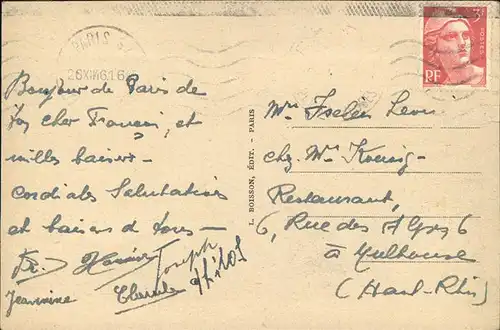 PARIS
3F
POSTES
RF
Bonjour de Paris de
cher Francis, et
milles baisers –
cordiales Salutations
et baisers de tous –
Joseph
Jeannine Claude
L. BOISSON, ÉDIT. - PARIS
Mr Iselin Leon
chez Mr Koenig
Restaurant,
6, Rue des 6
à Mulhouse
(Haut-Rhin)